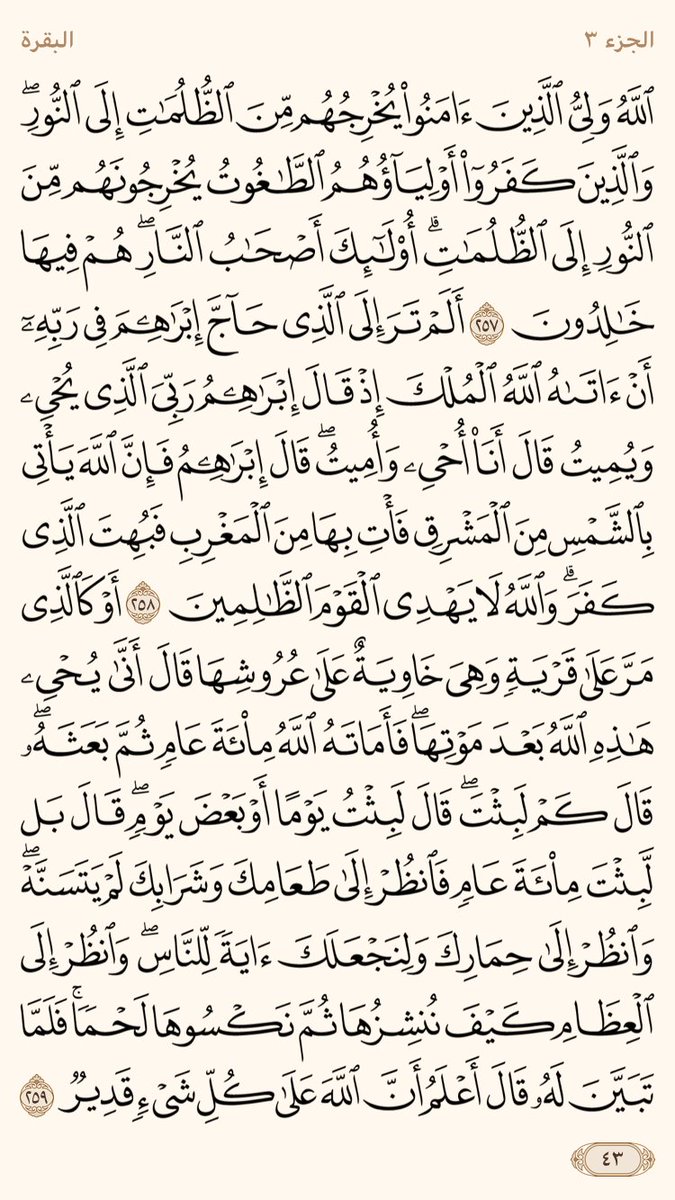 الجزء ٣
البقرة
ٱللَّهُ وَلِىُّ ٱلَّذِينَ ءَامَنُوا۟ يُخْرِجُهُم مِّنَ ٱلظُّلُمَـٰتِ إِلَى ٱلنُّورِ ۖ
وَٱلَّذِينَ كَفَرُوٓا۟ أَوْلِيَآؤُهُمُ ٱلطَّـٰغُوتُ يُخْرِجُونَهُم مِّنَ
ٱلنُّورِ إِلَى ٱلظُّلُمَـٰتِ ۗ أُو۟لَـٰٓئِكَ أَصْحَـٰبُ ٱلنَّارِ ۖ هُمْ فِيهَا
خَـٰلِدُونَ ٢٥٧ أَلَمْ تَرَ إِلَى ٱلَّذِى حَآجَّ إِبْرَٰهِـۧمَ فِى رَبِّهِۦٓ
أَنْ ءَاتَىٰهُ ٱللَّهُ ٱلْمُلْكَ إِذْ قَالَ إِبْرَٰهِـۧمُ رَبِّىَ ٱلَّذِى يُحْىِۦ
وَيُمِيتُ قَالَ أَنَا۠ أُحْىِۦ وَأُمِيتُ ۖ قَالَ إِبْرَٰهِـۧمُ فَإِنَّ ٱللَّهَ يَأْتِى
بِٱلشَّمْسِ مِنَ ٱلْمَشْرِقِ فَأْتِ بِهَا مِنَ ٱلْمَغْرِبِ فَبُهِتَ ٱلَّذِى
كَفَرَ ۗ وَٱللَّهُ لَا يَهْدِى ٱلْقَوْمَ ٱلظَّـٰلِمِينَ ٢٥٨ أَوْ كَٱلَّذِى
مَرَّ عَلَىٰ قَرْيَةٍ وَهِىَ خَاوِيَةٌ عَلَىٰ عُرُوشِهَا قَالَ أَنَّىٰ يُحْىِۦ
هَـٰذِهِ ٱللَّهُ بَعْدَ مَوْتِهَا ۖ فَأَمَاتَهُ ٱللَّهُ مِا۟ئَةَ عَامٍ ثُمَّ بَعَثَهُۥ ۖ
قَالَ كَمْ لَبِثْتَ ۖ قَالَ لَبِثْتُ يَوْمًا أَوْ بَعْضَ يَوْمٍ ۖ قَالَ بَل
لَّبِثْتَ مِا۟ئَةَ عَامٍ فَٱنظُرْ إِلَىٰ طَعَامِكَ وَشَرَابِكَ لَمْ يَتَسَنَّهْ ۖ
وَٱنظُرْ إِلَىٰ حِمَارِكَ وَلِنَجْعَلَكَ ءَايَةً لِّلنَّاسِ ۖ وَٱنظُرْ إِلَى
ٱلْعِظَامِ كَيْفَ نُنشِزُهَا ثُمَّ نَكْسُوهَا لَحْمًا ۚ فَلَمَّا
تَبَيَّنَ لَهُۥ قَالَ أَعْلَمُ أَنَّ ٱللَّهَ عَلَىٰ كُلِّ شَىْءٍ قَدِيرٌ ٢٥٩
٤٣